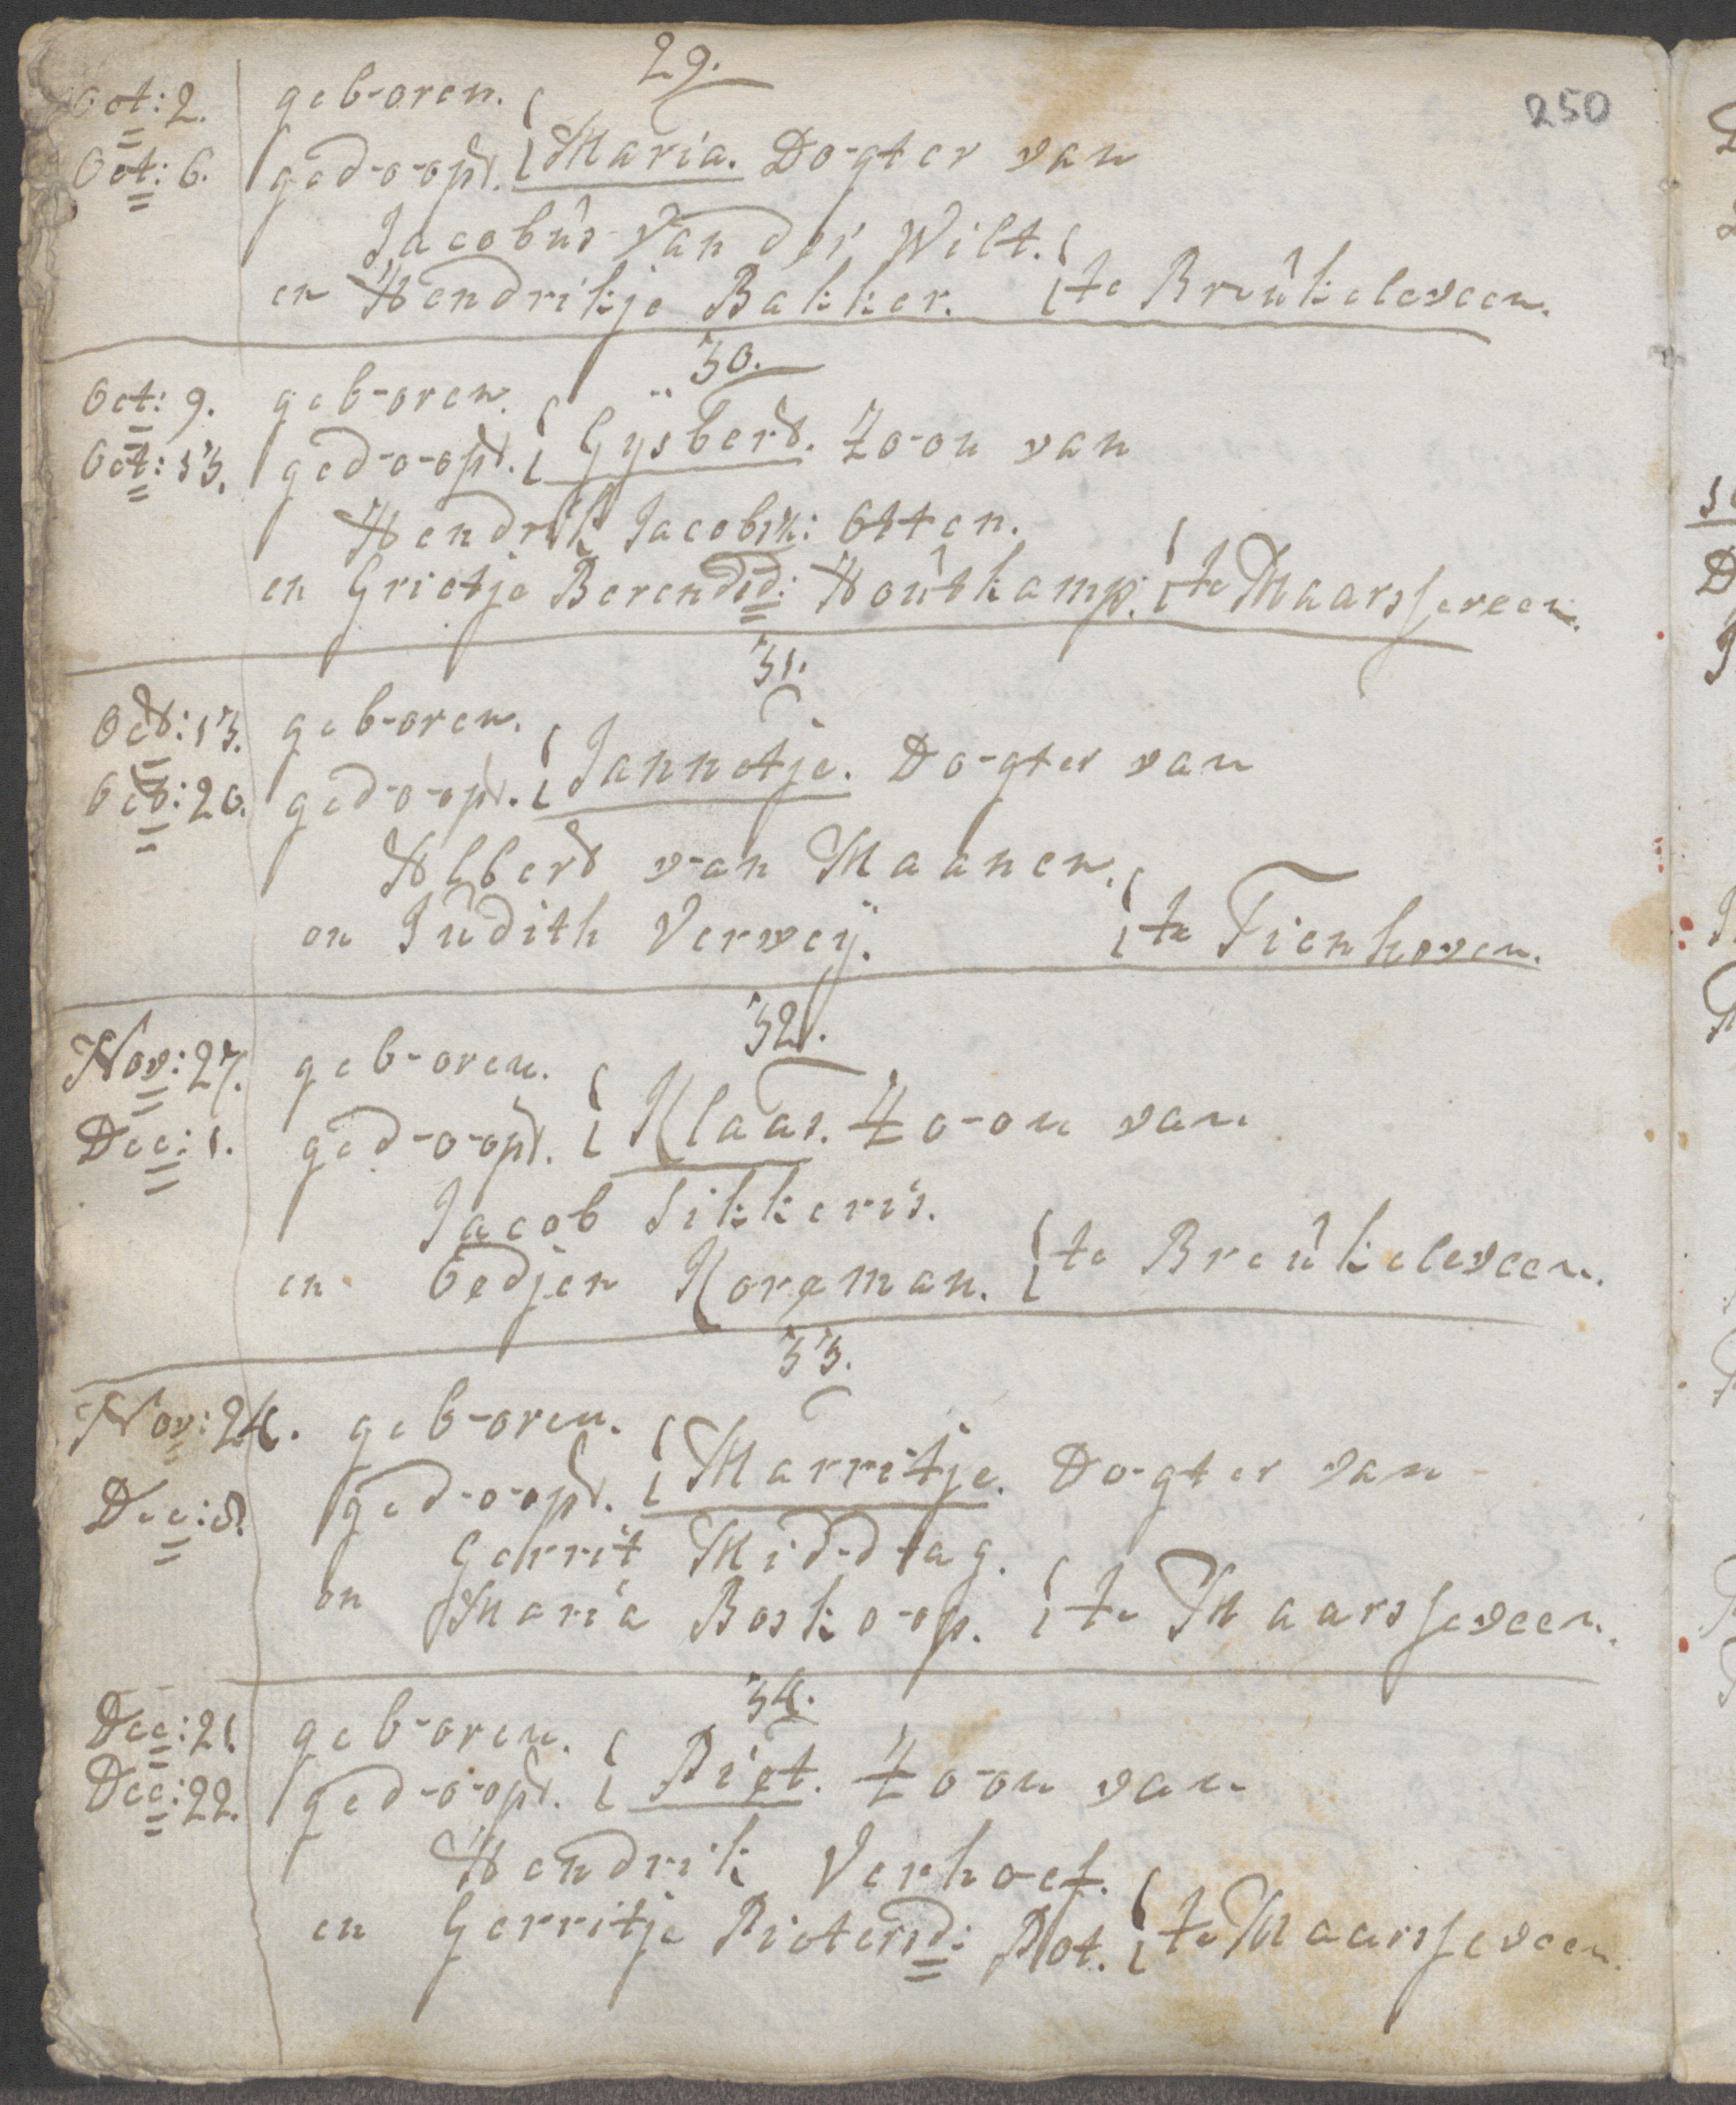 250
29.
Oct: 2. geb-oren.
Oct: 6. ged-o-opt. Maria. Do-gter van
Jacobus Van der Wilt.
en Hendrikje Bakker. te Breukeleveen.
30.
Oct: 9. geb-oren.
Oct: 13. ged-o-opt. Gysbert. Zo-on van
Hendrik Jacobsz: Otten.
en Grietje Berendsd: Houtkamp. te Maarsseveen.
31.
Oct: 13. geb-oren.
Oct: 20. ged-o-opt. Jannetje. Do-gter van
Albert van Maanen.
en Judith Verweÿ. te Tienhoven.
32.
Nov: 27. geb-oren.
Dec: 1. ged-o-opt. Klaas. Zo-on van
Jacob Sikkeris.
en Oedjen Koreman. te Breukeleveen.
33.
Nov: 24. geb-oren.
Dec: 8. ged-o-opt. Marritje. Do-gter van
Gerrit Mid-d-ag.
en Maria Bosko-op. te Maarsseveen.
34.
Dec: 21. geb-oren.
Dec: 22. ged-o-opt. Piet. Zo-on van
Hendrik Verho-ef.
en Gerritje Pietersd: Plot. te Maarsseveen.